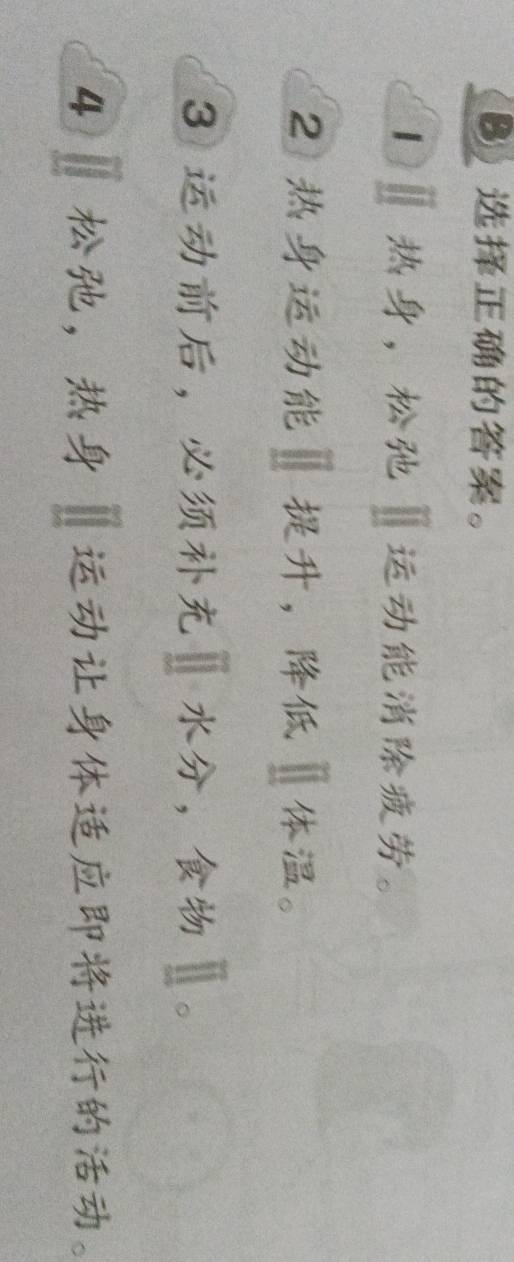 B 选择正确的答案。
1 〖热身，松弛〗运动能消除疲劳。
2 热身运动能〖提升，降低〗体温。
3 运动前后，必须补充〖水分，食物〗。
4 〖松弛，热身〗运动让身体适应即将进行的活动。